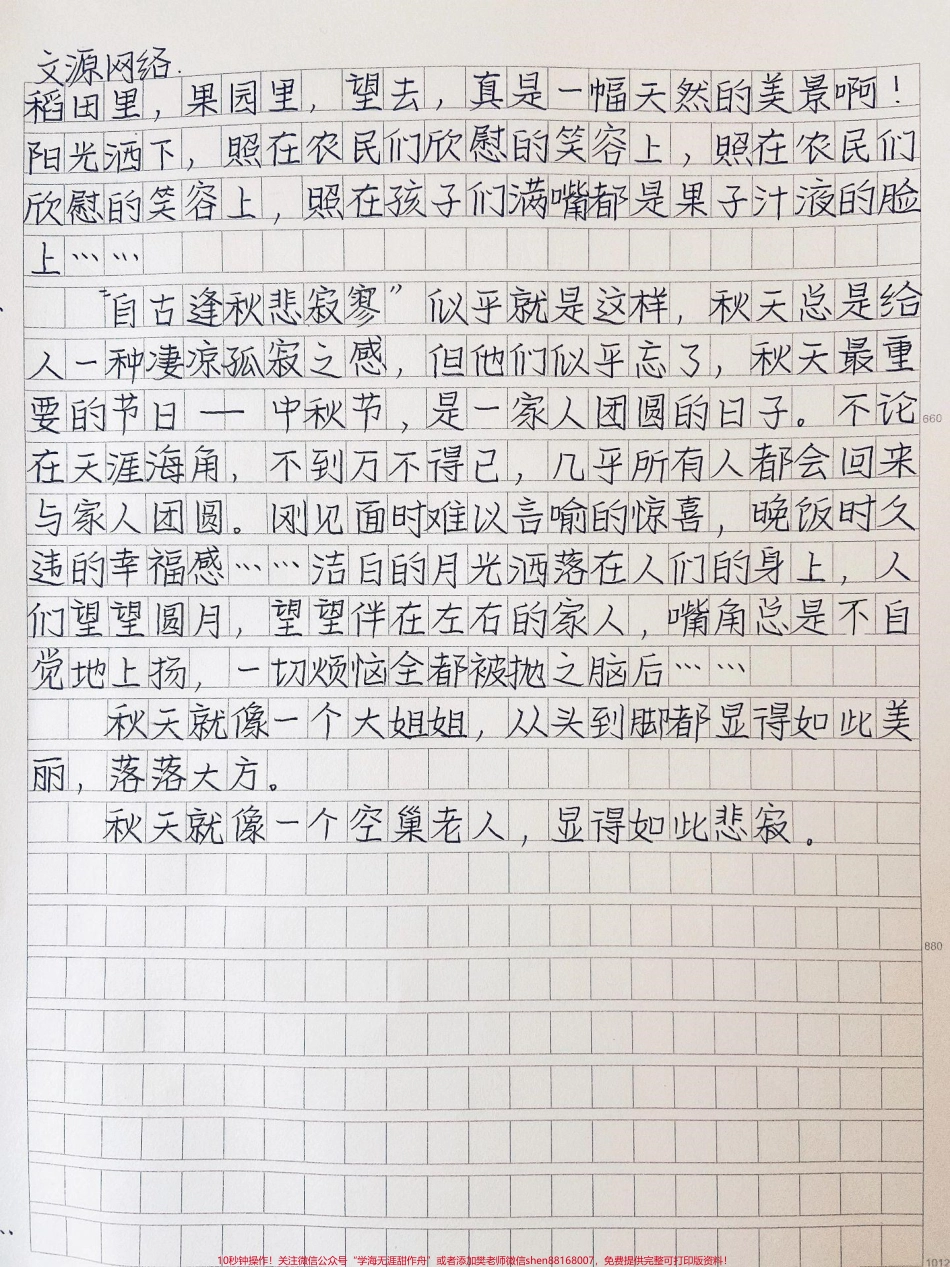 文源网络.
稻田里，果园里，望去，真是一幅天然的美景啊！
阳光洒下，照在农民们欣慰的笑容上，照在农民们
欣慰的笑容上，照在孩子们满嘴都是果子汁液的脸
上……
“自古逢秋悲寂寥”似乎就是这样，秋天总是给
人一种凄凉孤寂之感，但他们似乎忘了，秋天最重
要的节日——中秋节，是一家人团圆的日子。不论
660
在天涯海角，不到万不得已，几乎所有人都会回来
与家人团圆。刚见面时难以言喻的惊喜，晚饭时久
违的幸福感……洁白的月光洒落在人们的身上，人
们望望圆月，望望伴在左右的家人，嘴角总是不自
觉地上扬，一切烦恼全都被抛之脑后……
秋天就像一个大姐姐，从头到脚都显得如此美
丽，落落大方。
秋天就像一个空巢老人，显得如此悲寂。
880
1012
10秒钟操作！关注微信公众号“学海无涯甜作舟”或者添加樊老师微信shen88168007，免费提供完整可打印版资料！